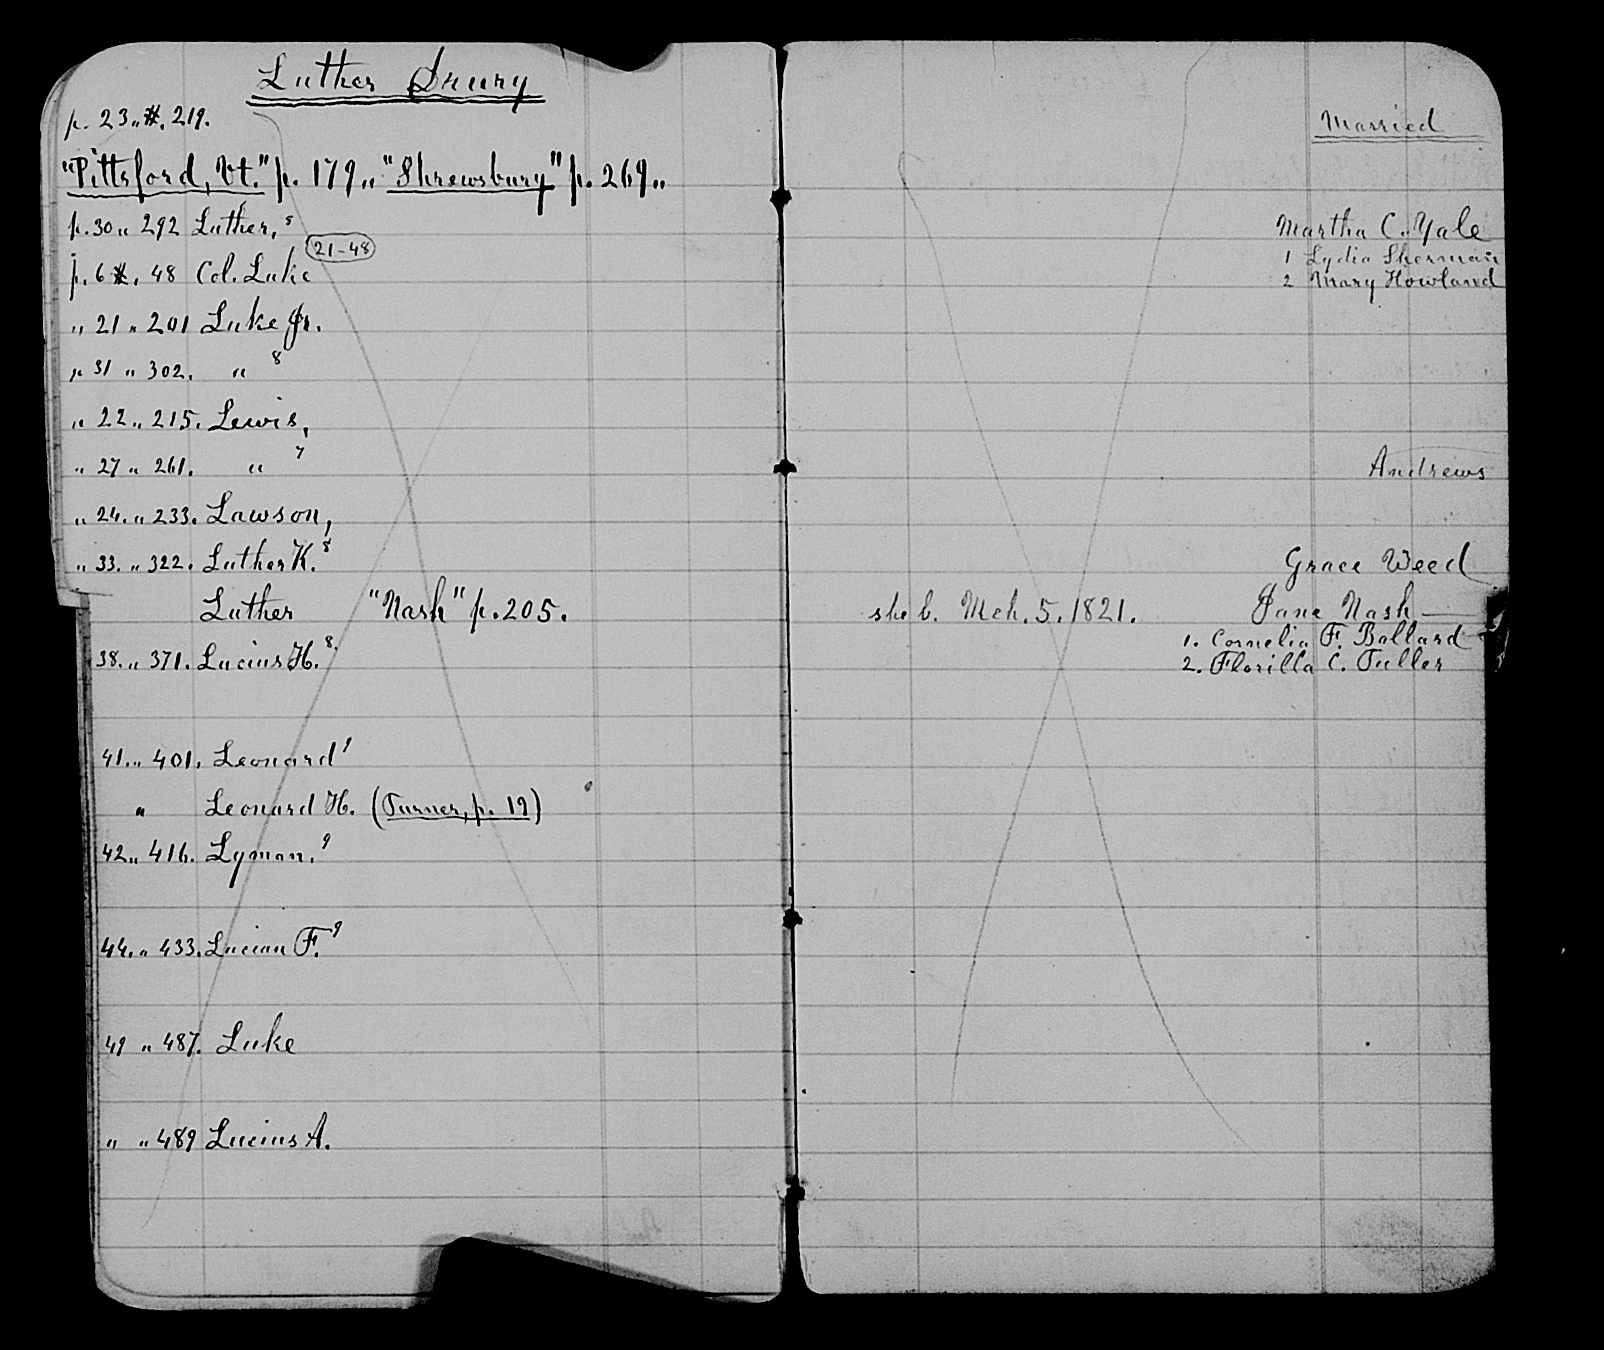 Luther Drury
p. 23 „ #. 219. Married
"Pittsford, Vt." p. 179 „ "Shrewsbury" p. 269 „
p. 30 „ 292 Luther, 8 Martha C. Yale
21-48 1 Lydia Sherman
p. 6 #. 48 Col. Luke 2 Mary Howland
„ 21 „ 201 Luke Jr.
p 31 „ 302. „ 8
„ 22 „ 215. Lewis,
„ 27 „ 261. „ 7 Andrews
„ 24. „ 233. Lawson,
„ 33. „ 322. Luther K. 8 Grace Weed
Luther "Nash" p. 205. she b. Mch. 5. 1821. Jane Nash
1. Cornelia F. Ballard
38. „ 371. Lucius H. 8. 2. Florilla C. Fuller
41. „ 401. Leonard 9
„ Leonard H. (Turner, p. 19)
42 „ 416. Lyman. 9
44. „ 433. Lucian F. 9
49 „ 487. Luke
„ „ 489 Lucius A.